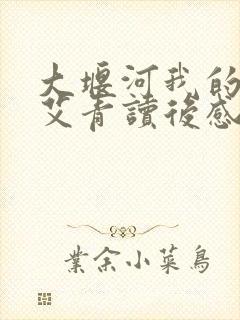 大堰河我的
艾青讀後感
業余小菜鳥